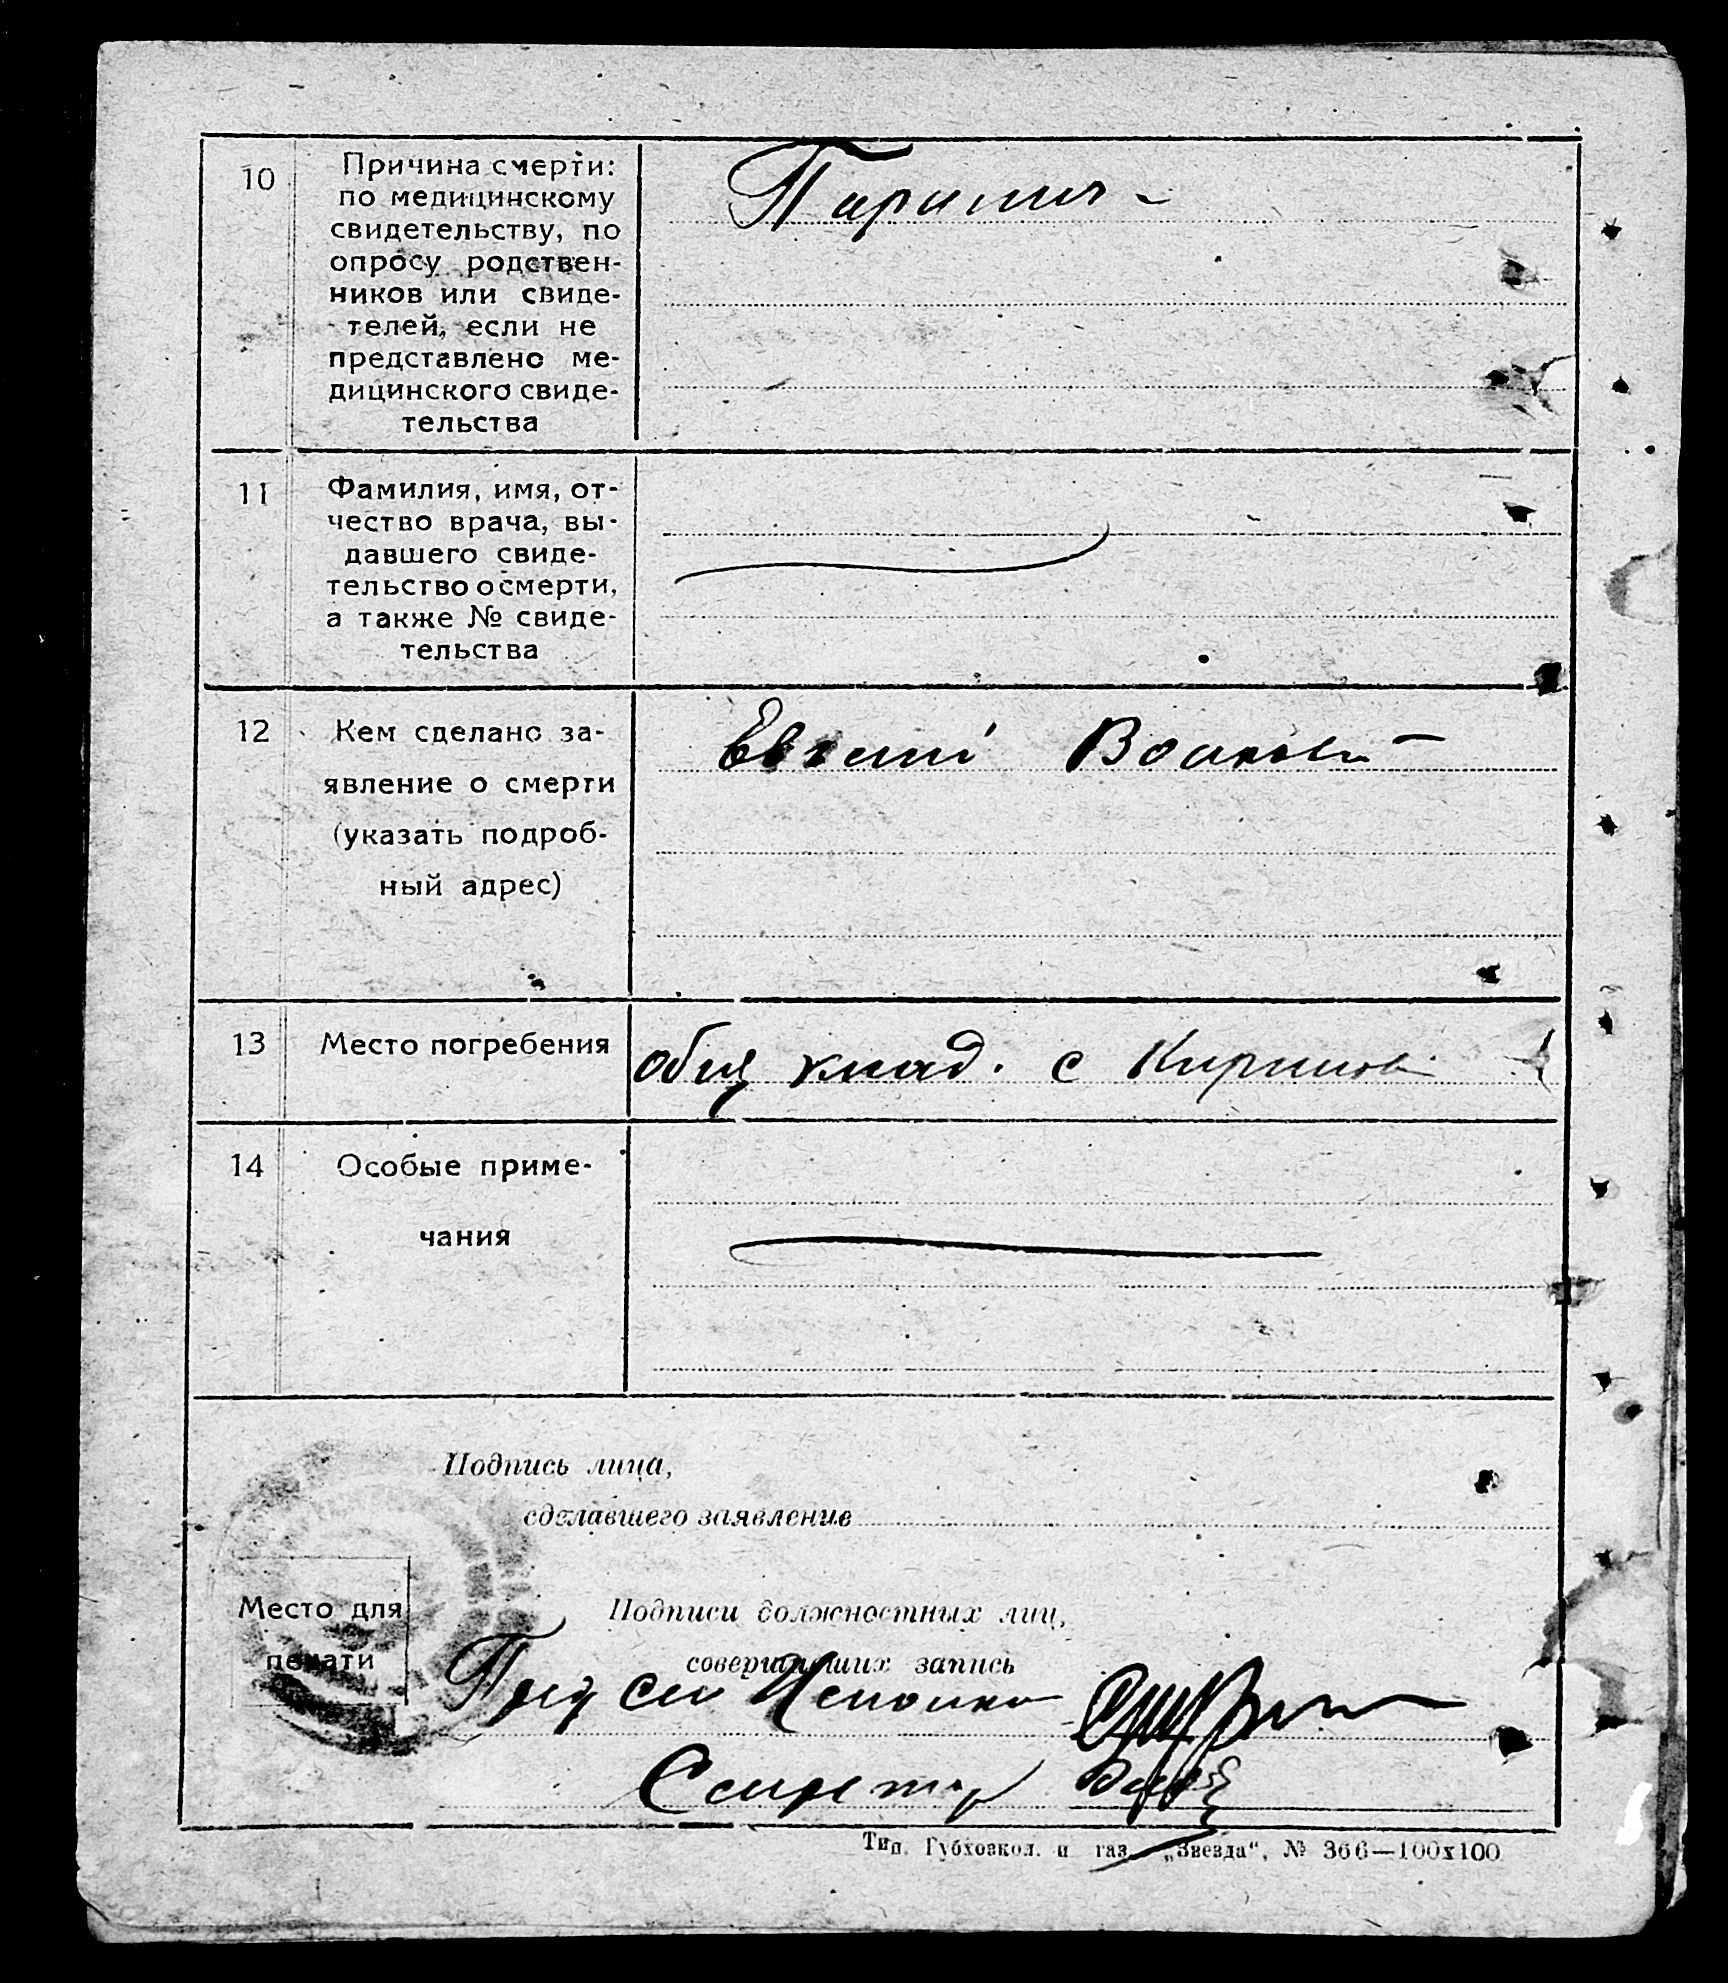 10
Причина смерти:
по медицинскому
свидетельству, по
опросу родствен-
ников или свиде-
телей, если не
представлено ме-
дицинского свиде-
тельства
Паралич
11
Фамилия, имя, от-
чество врача, вы-
давшего свиде-
тельство о смерти,
а также № свиде-
тельства
12
Кем сделано за-
явление о смерти
(указать подроб-
ный адрес)
Евгений
13
Место погребения
общ клад. с
14
Особые приме-
чания
Подпись лица,
сделавшего заявление
Место для
печати
Подписи должностных лиц,
совершивших запись
Секретарь
Тип. Губхозкол. и газ. „Звезда“, № 366—100х100